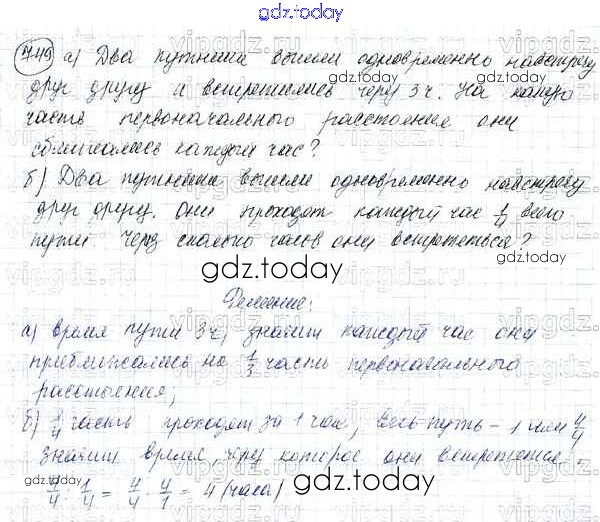 gdz.today
749 а) Два путника вышли одновременно навстречу
друг другу и встретились через 3 ч. На какую
часть первоначального расстояния они
сближались каждый час?
б) Два путника вышли одновременно навстречу
друг другу. Они проходят каждый час 1/4 всего
пути. Через сколько часов они встретяться?
gdz.today
Решение:
а) время пути 3 ч, значит каждый час они
приближались на 1/3 часть первоначального
расстояния;
б) 1/4 часть проходят за 1 час, весь путь – 1 или 4/4
значит время, через которое они встретятся
4/4 : 1/4 = 4/4 · 4/1 = 4 (часа)
gdz.today